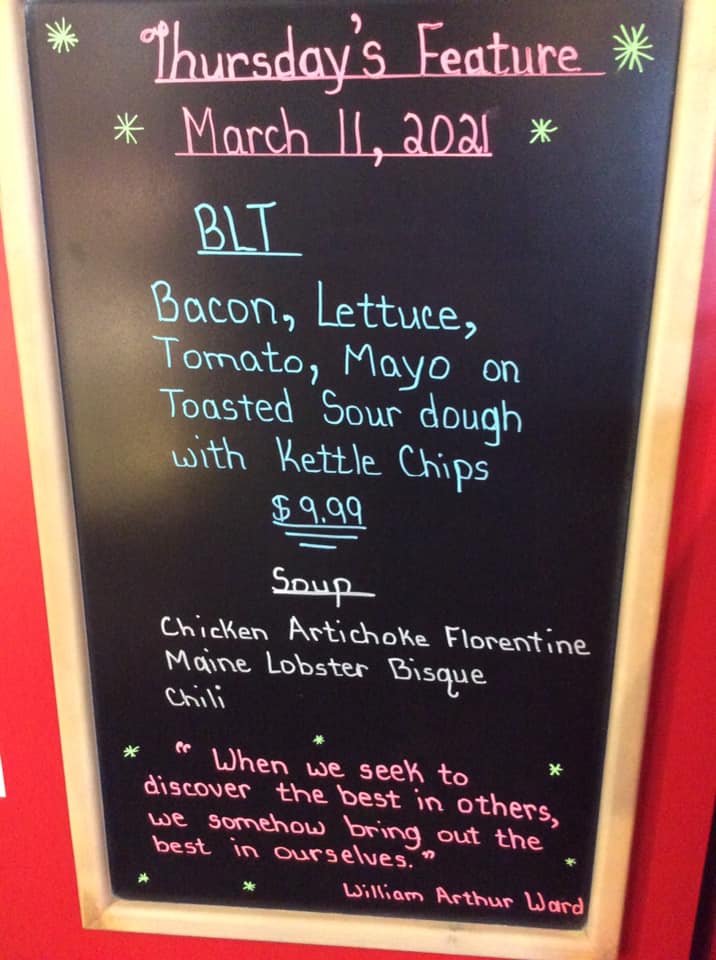 Thursday's Feature
March 11, 2021
BLT
Bacon, Lettuce,
Tomato, Mayo on
Toasted Sour dough
with Kettle Chips
$9.99
Soup
Chicken Artichoke Florentine
Maine Lobster Bisque
Chili
"When we seek to
discover the best in others,
we somehow bring out the
best in ourselves."
William Arthur Ward